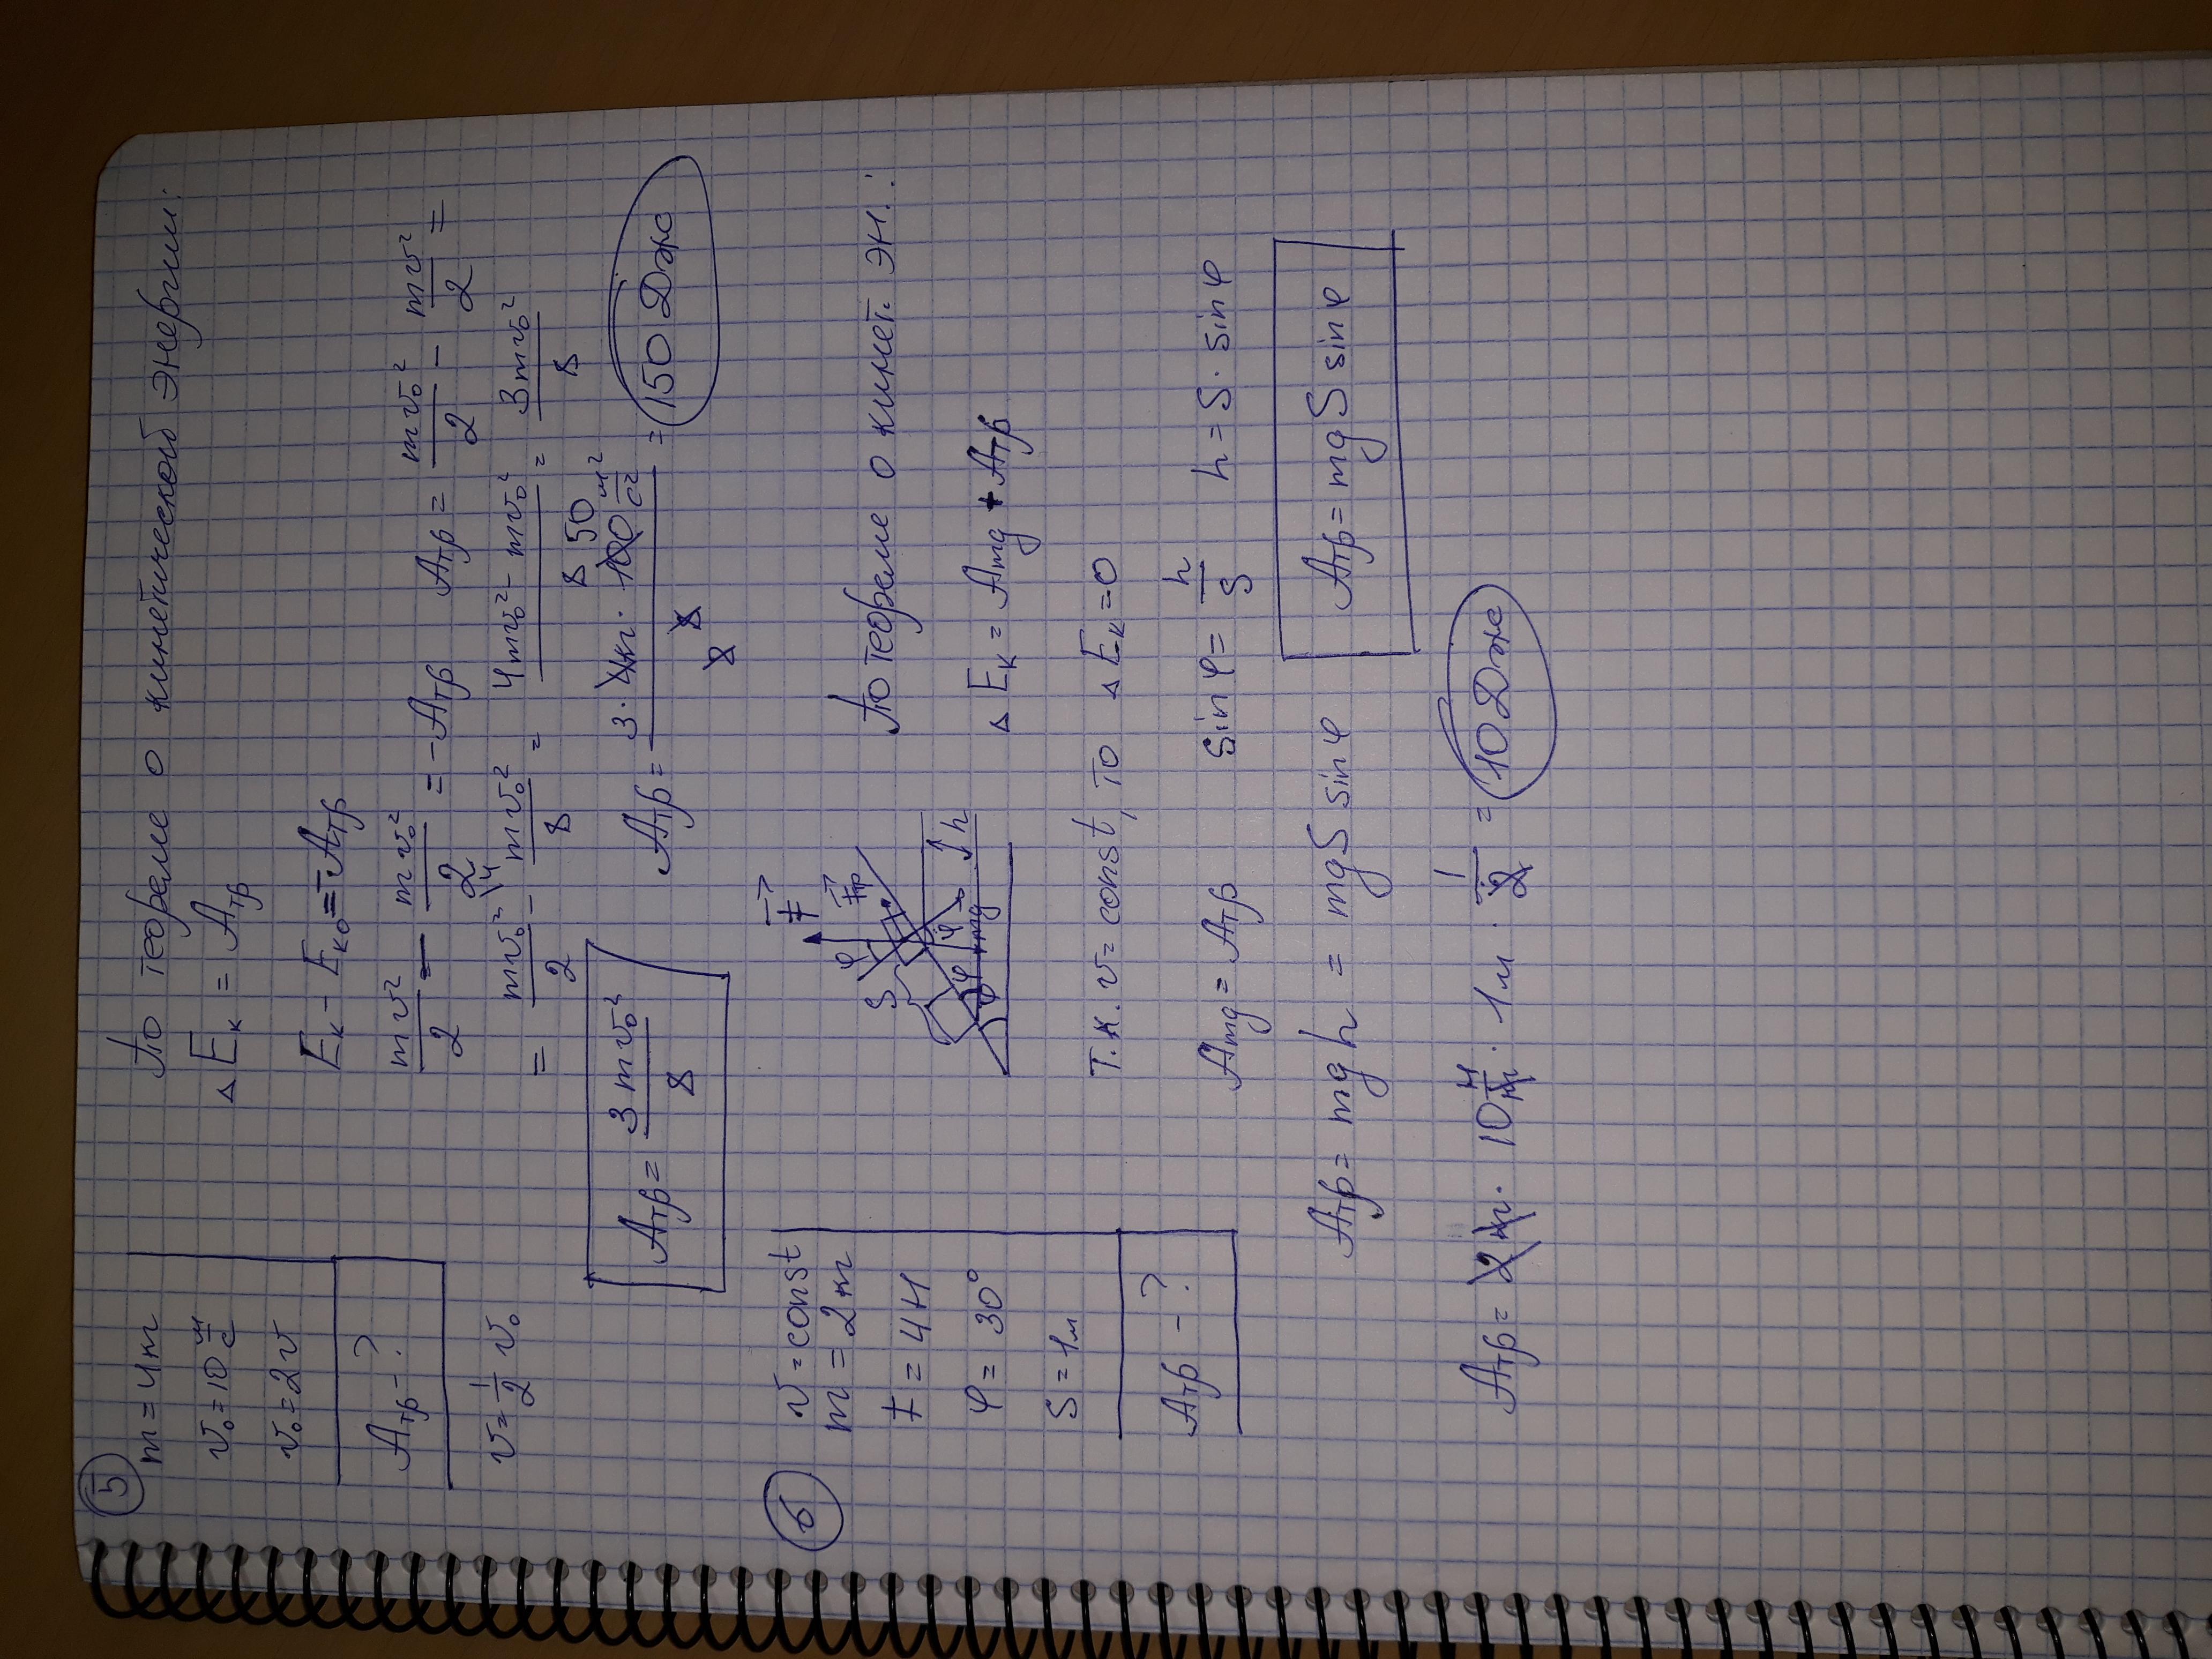 5
m = 4кг
v₀ = 10 м/с
v₀ = 2v
Aтр - ?
v = 1/2 v₀
По теореме о кинетической энергии:
△Eк = Aтр
Eк - Eк₀ = -Aтр
mv²/2 - mv₀²/2 = -Aтр Aтр = mv₀²/2 - mv²/2 =
= mv₀²/2 - mv₀²/8 = 4mv₀² - mv₀²/8 = 3mv₀²/8
Aтр = 3mv₀²/8
Aтр = 3 · 4кг · 100 м²/с²/8 = 150 Дж
6
v = const
m = 2кг
F = 4Н
φ = 30°
S = 1м
Aтр - ?
По теореме о кинет. эн.:
△Eк = Amg + Aтр
Т.к. v = const, то △Eк = 0
Amg = Aтр sin φ = h/S h = S · sin φ
Aтр = mgh = mgS sin φ Aтр = mgS sin φ
Aтр = 2кг · 10 Н/кг · 1м · 1/2 = 10 Дж
F
Fтр
S
φ
φ
φ
mg
h